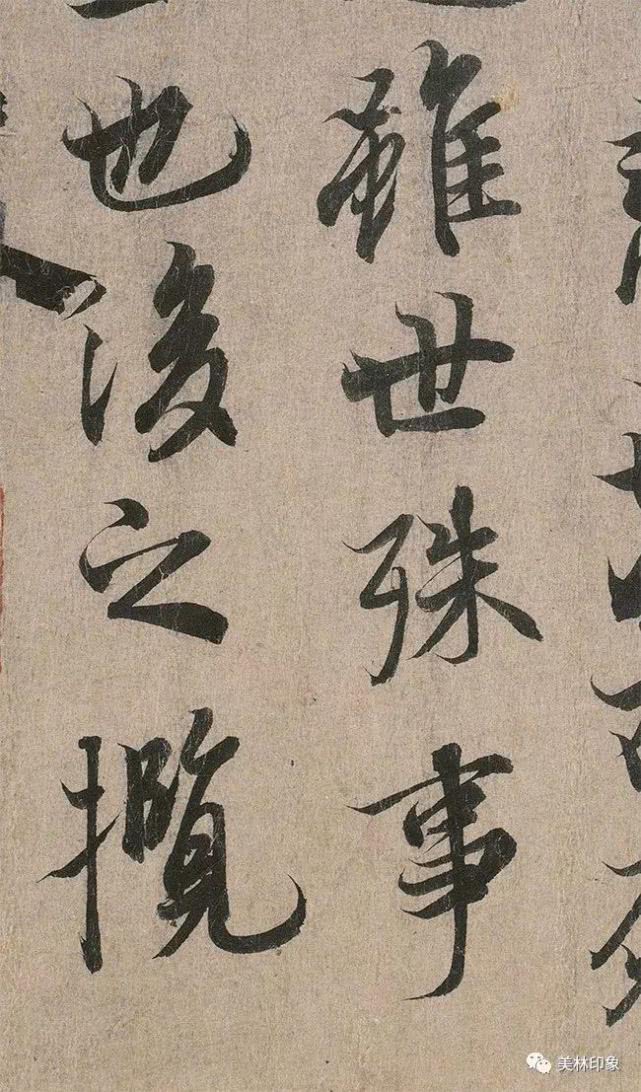 雖世殊事
也後之攬
美林印象